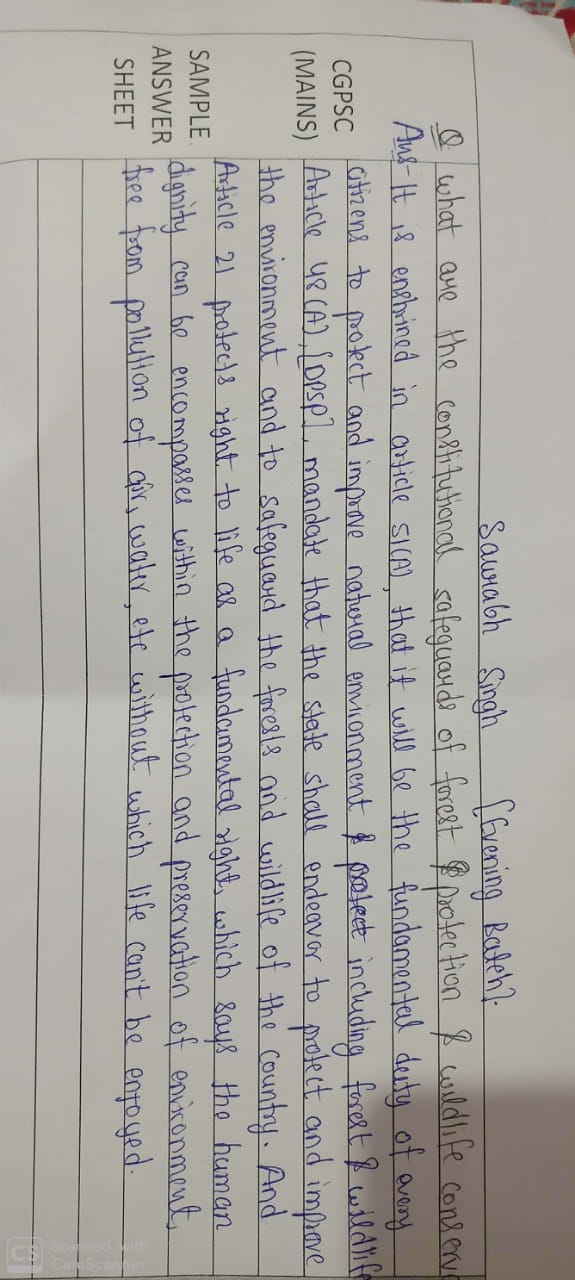 Saurabh Singh [Evening Batch].
Q. what are the constitutional safeguards of forest protection & wildlife conserv
Ans- It is enshrined in article 51(A), that it will be the fundamental deuty of every
citizens to protect and improve natural environment & protect including forest & wildlife
Article 48(A), [DPSP], mandate that the state shall endeavor to protect and improve
the environment and to safeguard the forests and wildlife of the country. And
Article 21 protects right to life as a fundamental right, which says the human
dignity can be encompasses within the protection and preservation of environment,
free from pollution of air, water, etc without which life can't be enjoyed.
CGPSC
(MAINS)
SAMPLE
ANSWER
SHEET
CS Scanned with
CamScanner